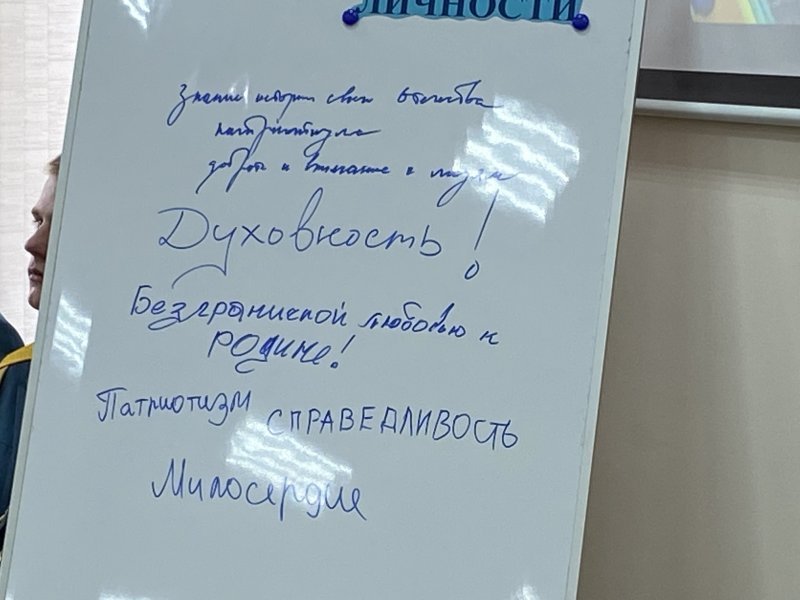 ЛИЧНОСТИ
Знание истории своего отечества
патриотизма
доброта и внимание к людям
Духовность!
Безграниской любовью к
РОДИНЕ!
Патриотизм СПРАВЕДЛИВОСТЬ
Милосердие